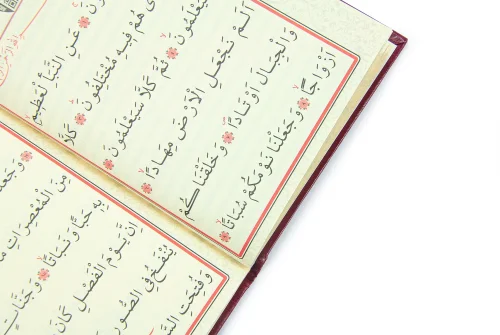 عَنِ النَّبَأِ الْعَظِيمِ
هُمْ فِيهِ مُخْتَلِفُونَ ۞ كَلَّا
سَيَعْلَمُونَ ۞ ثُمَّ كَلَّا سَيَعْلَمُونَ ۞
أَلَمْ نَجْعَلِ الْأَرْضَ مِهَادًا ۞
وَالْجِبَالَ أَوْتَادًا ۞ وَخَلَقْنَاكُمْ
أَزْوَاجًا ۞ وَجَعَلْنَا نَوْمَكُمْ سُبَاتًا ۞
مِنَ الْمُعْصِرَاتِ
بِهِ حَبًّا وَنَبَاتًا ۞ وَجَنَّاتٍ
إِنَّ يَوْمَ الْفَصْلِ كَانَ
يُنْفَخُ فِي الصُّورِ
وَفُتِحَتِ